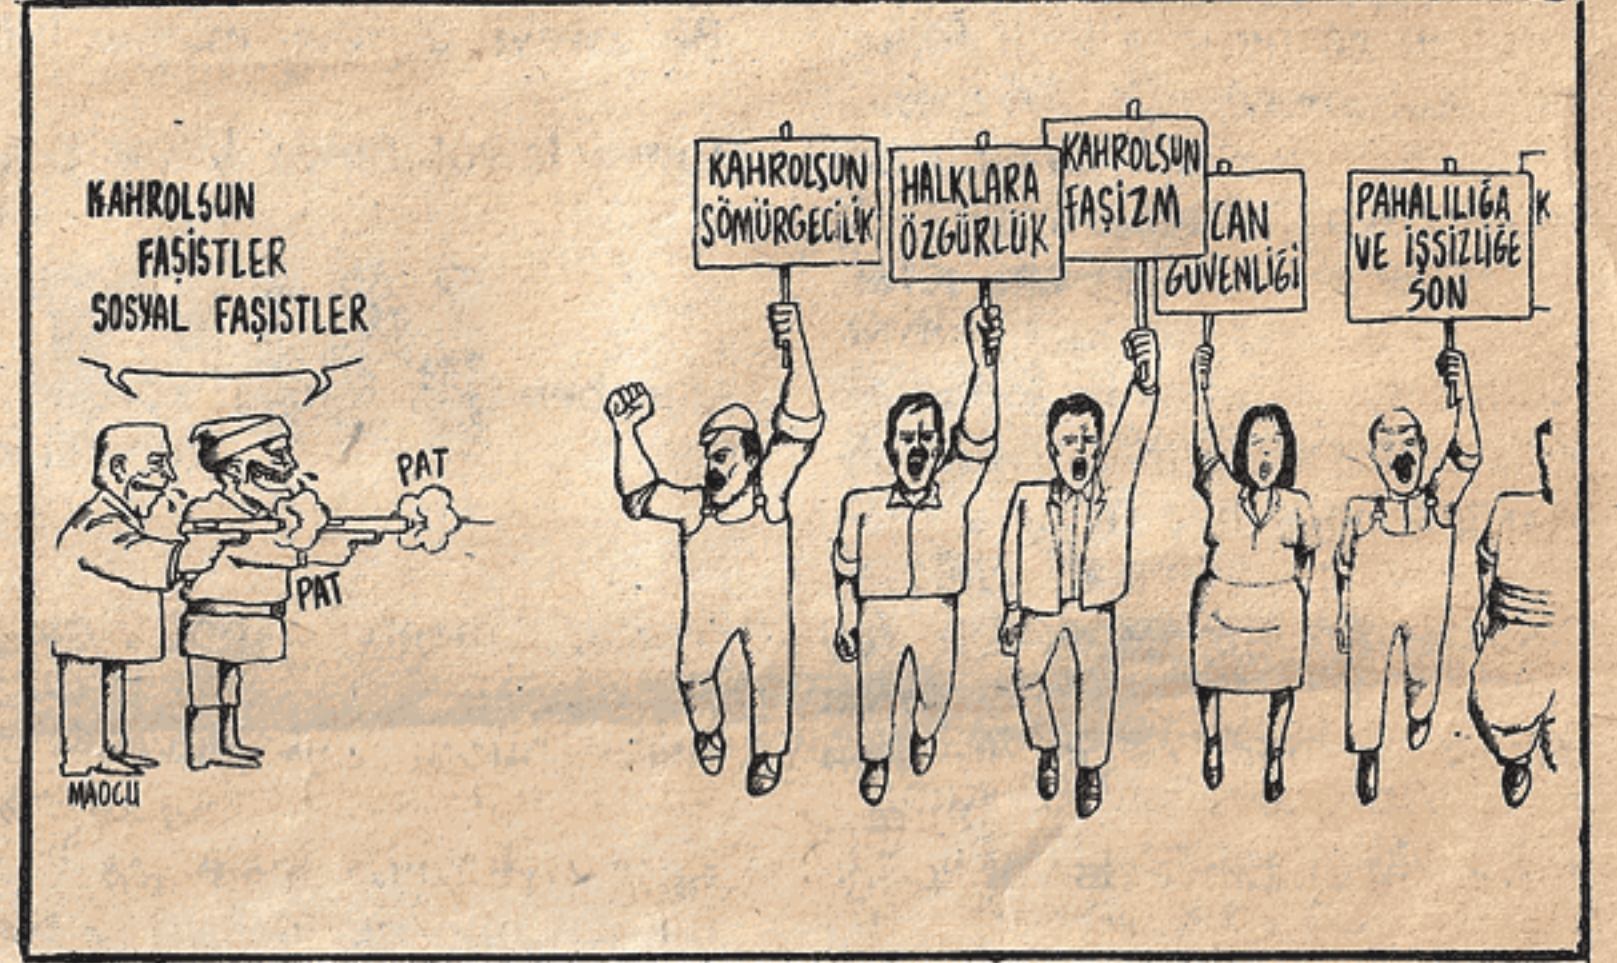 KAHROLSUN
FAŞİSTLER
SOSYAL FAŞISTLER
PAT
PAT
MAOCU
KAHROLSUN
SÖMÜRGECİLİK
HALKLARA
ÖZGÜRLÜK
KAHROLSUN
FAŞİZM
CAN
GÜVENLİĞİ
PAHALILIĞA
VE İŞSİZLİĞE
SON
K